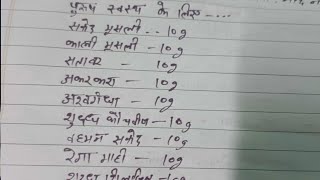 पुरुष स्वस्थ के लिए ----
सफेद मूसली .. 10g
काली मूसली - 10g
सतावर - 10g
अकरकरा - 10g
अश्वगंधा - 10g
शुद्ध कौंचबीज - 10g
वहमन सफेद - 10g
रेगा माही - 10g
10g